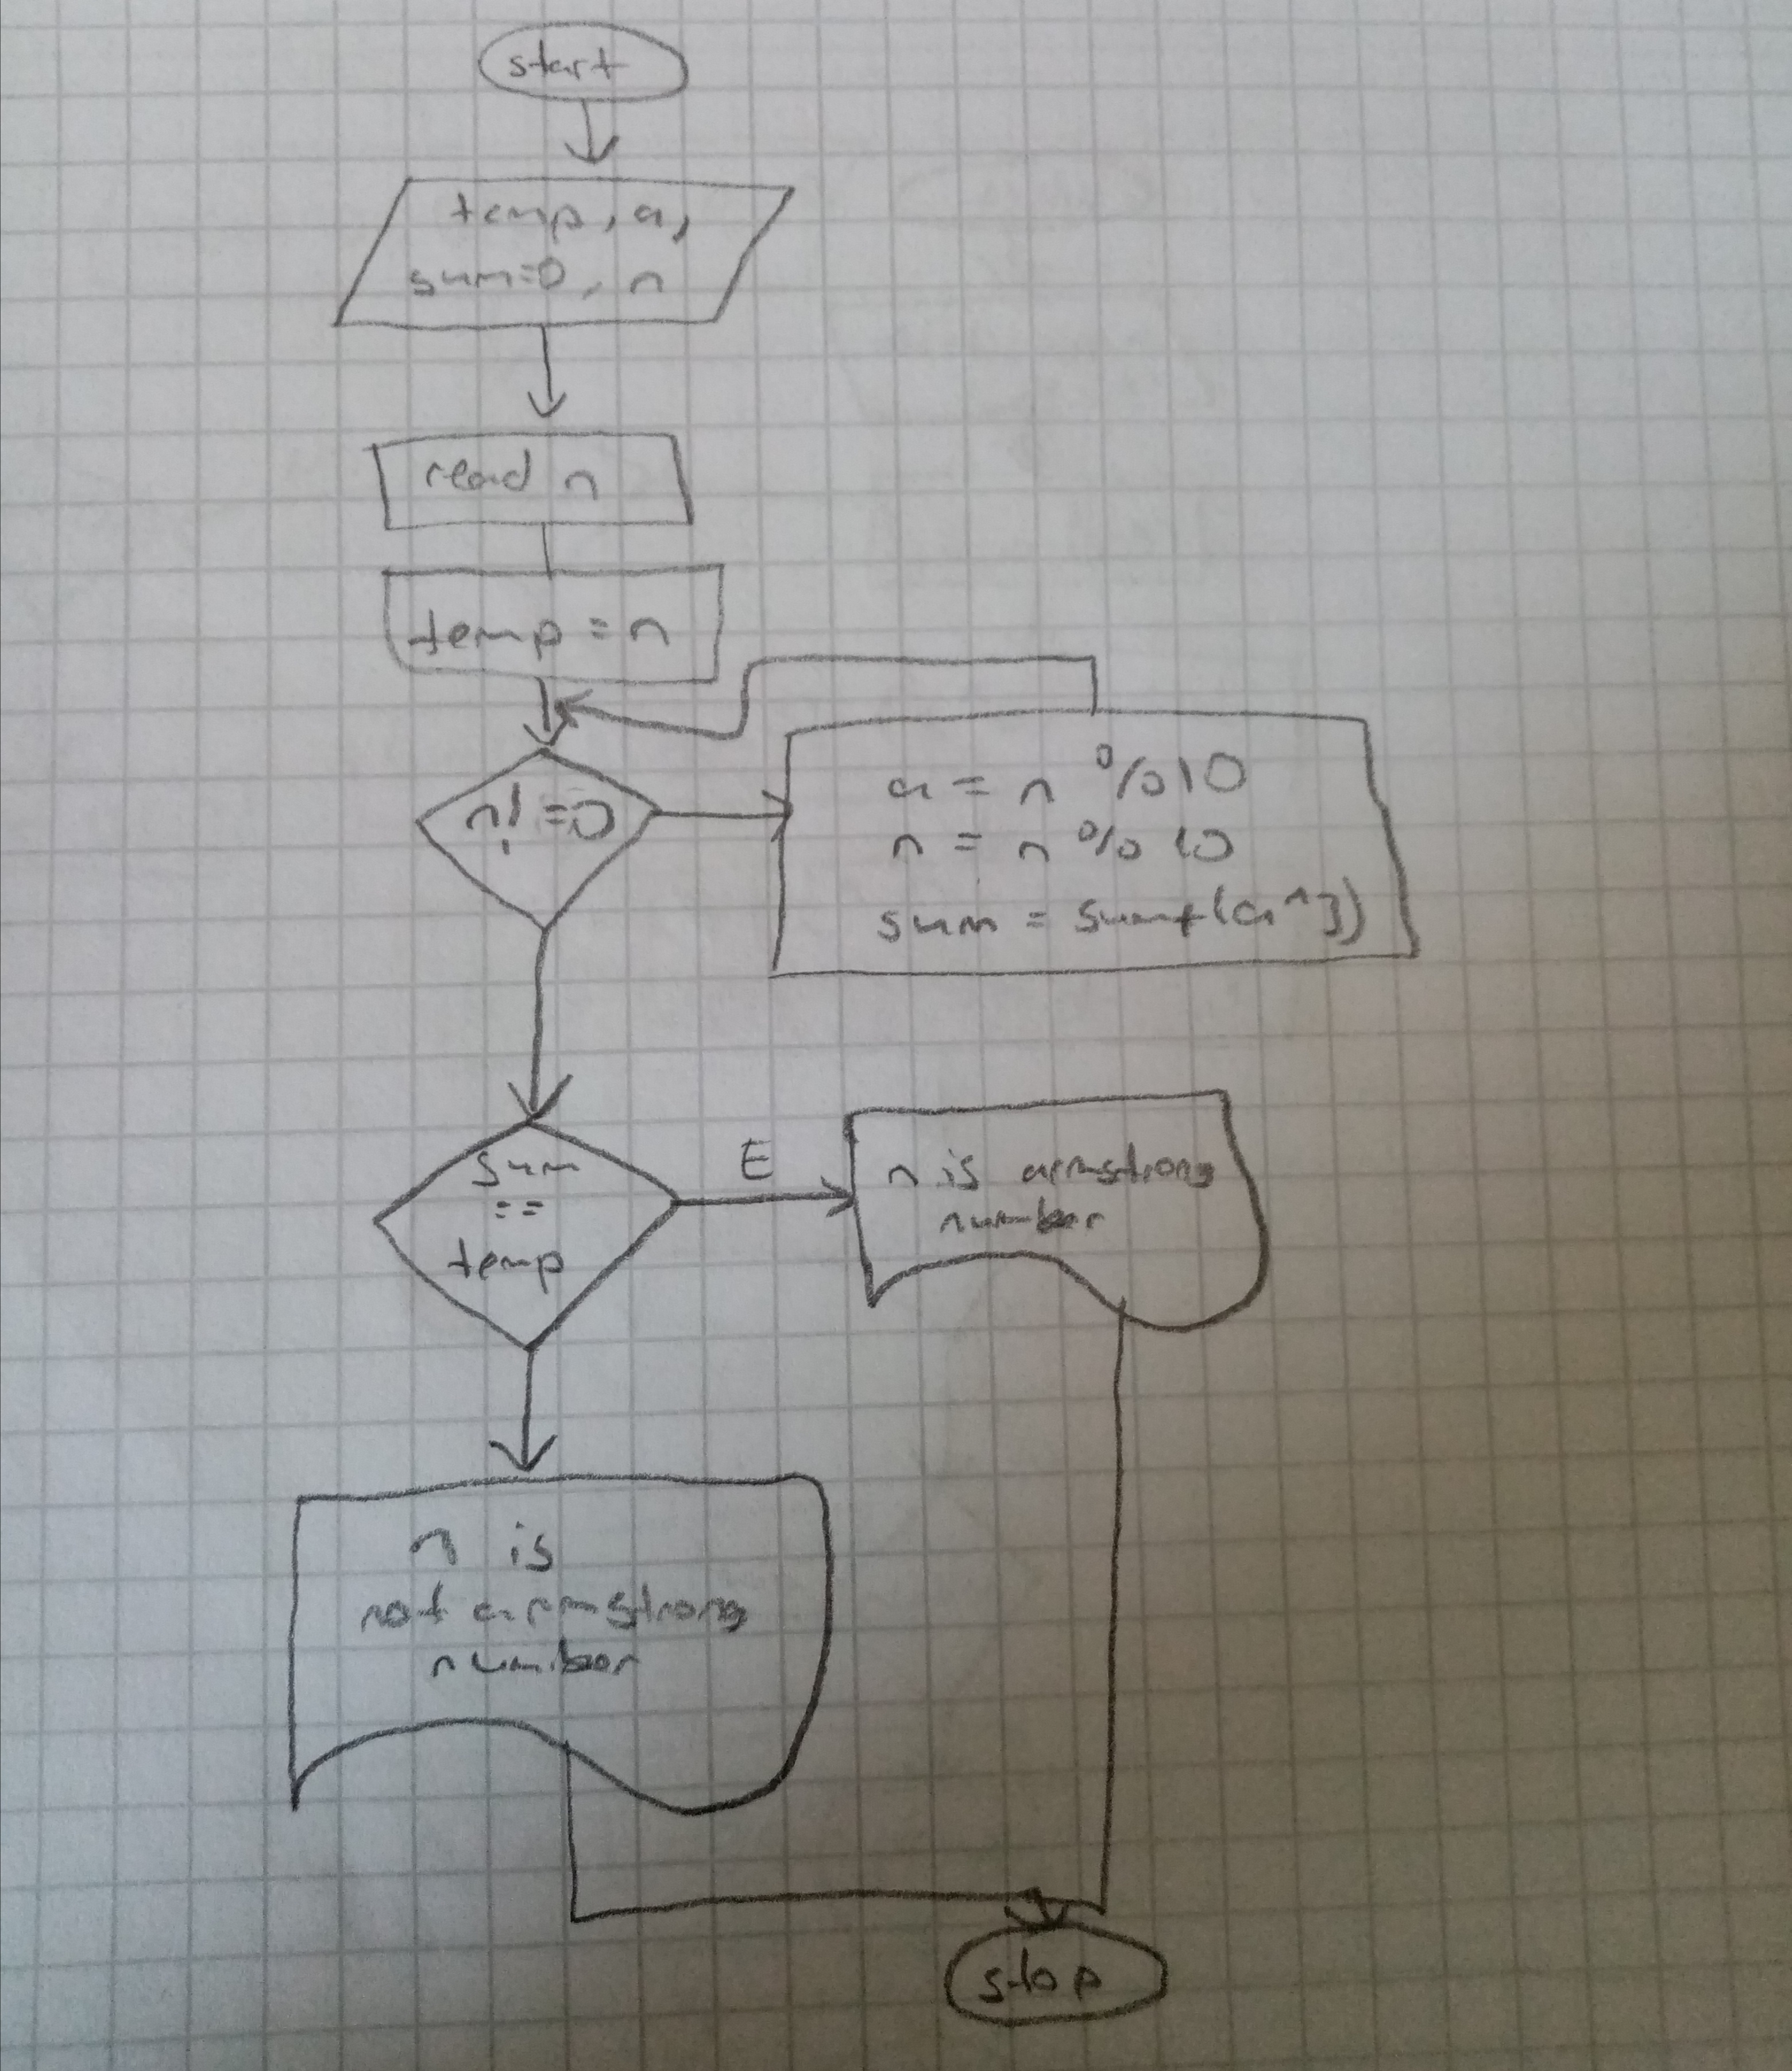 start
temp, a,
sum=0, n
read n
temp = n
n! =0
a = n % 10
n = n % 10
sum = sum+(a^3)
sum
==
temp
E
n is armstrong
number
n is
not armstrong
number
stop